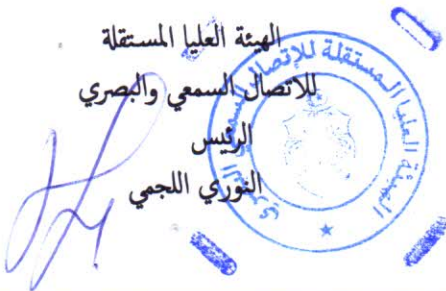 الهيئة العليا المستقلة
للاتصال السمعي والبصري
الرئيس
النوري اللجمي
الهيئة العليا المستقلة للإتصال السمعي البصري